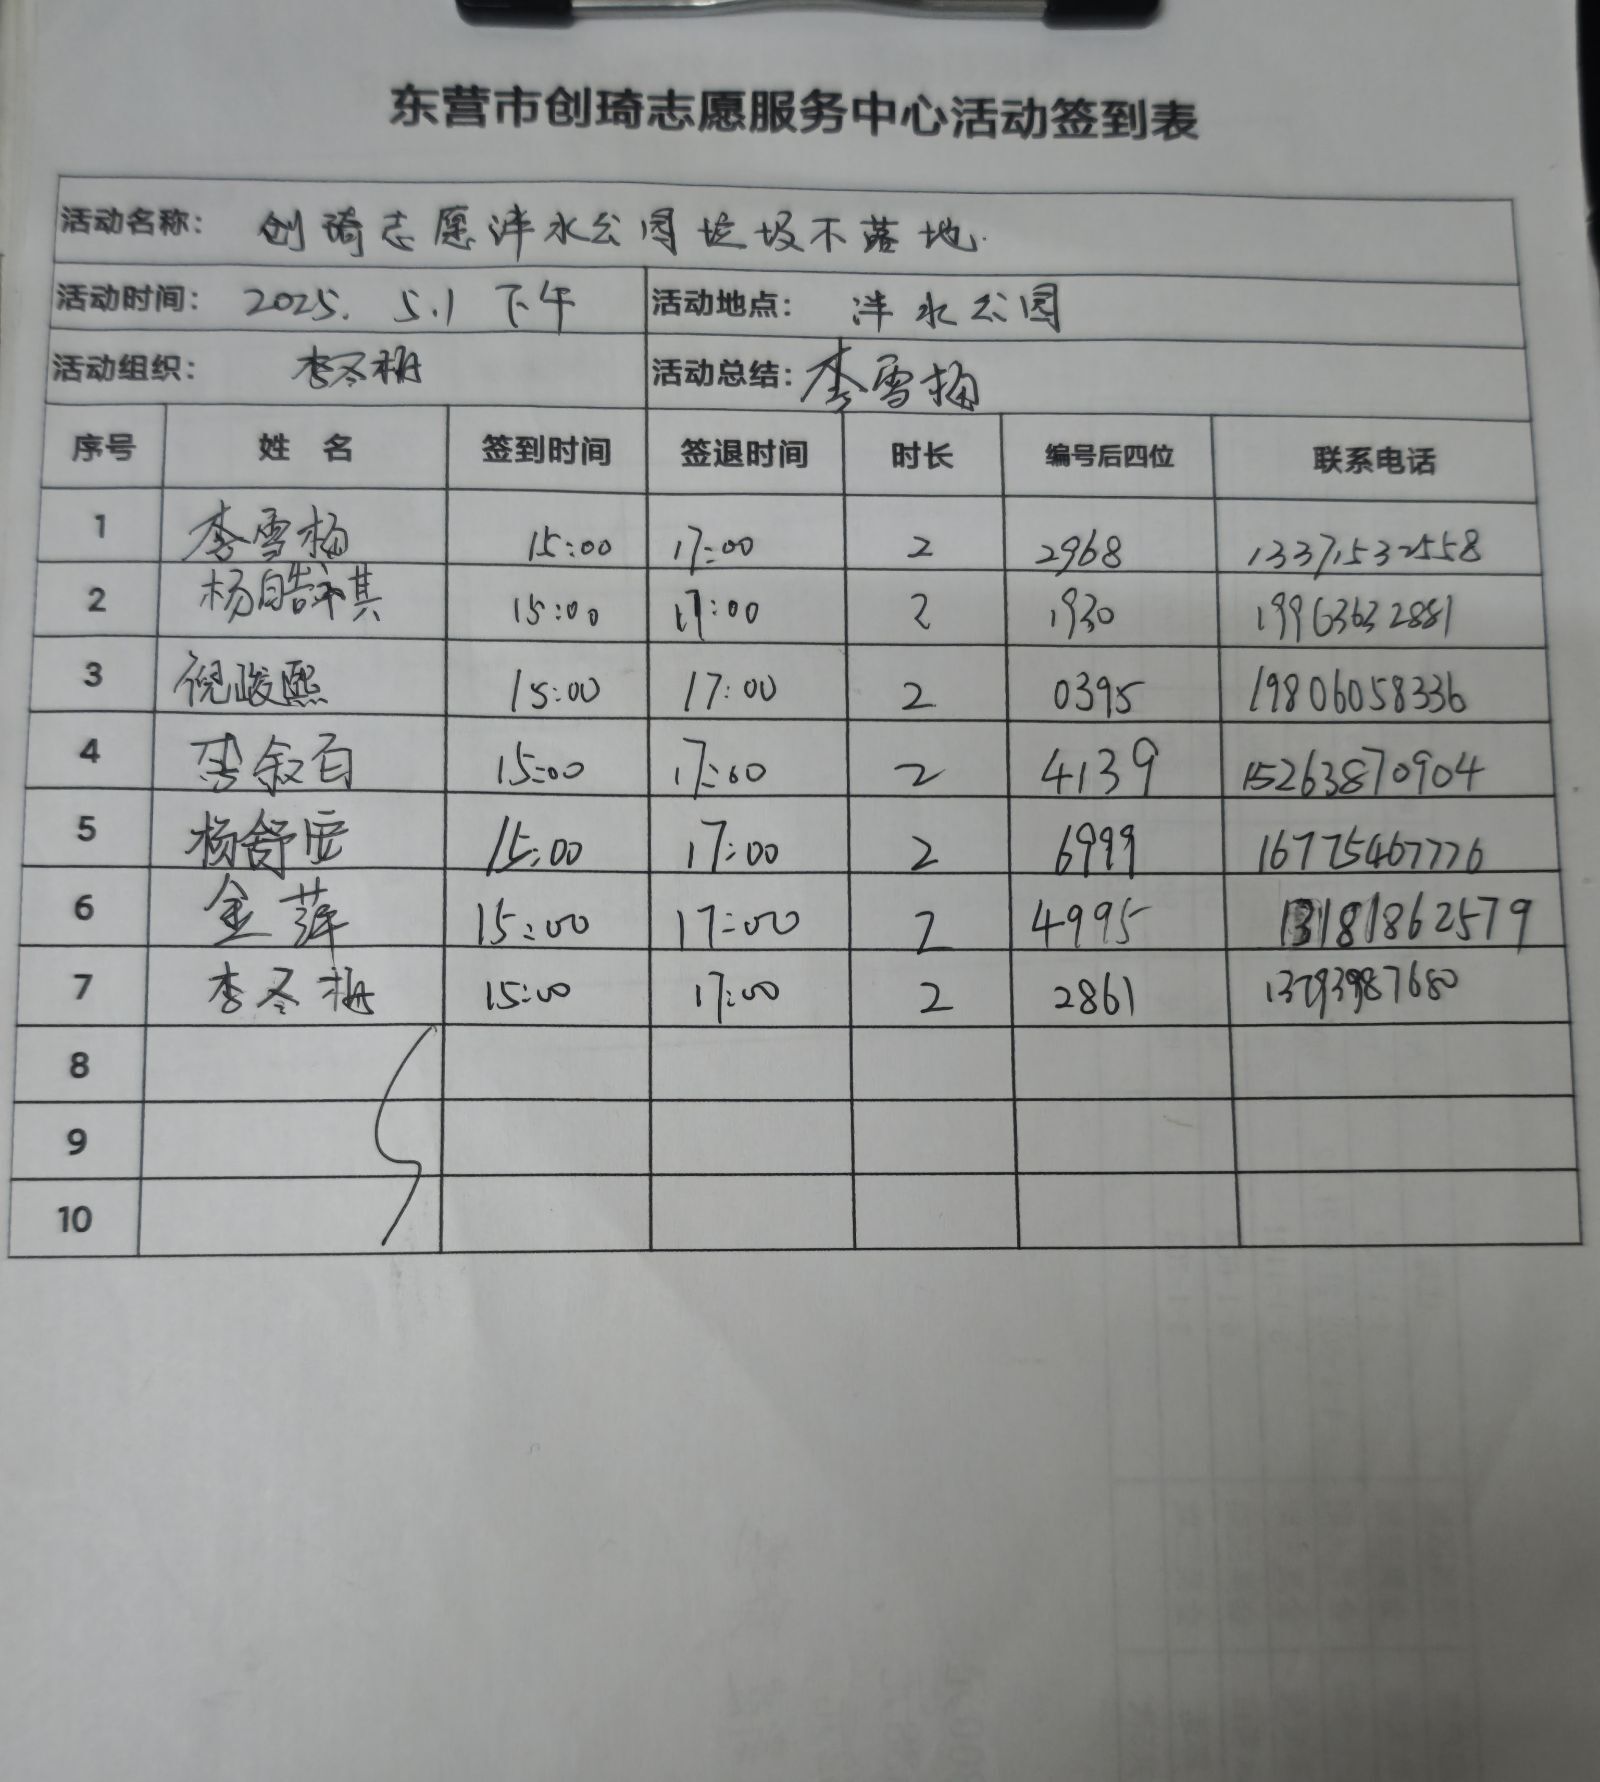 东营市创琦志愿服务中心活动签到表
活动名称： 创琦志愿泮水公园垃圾不落地.
活动时间： 2025. 5.1 下午 活动地点： 泮水公园
活动组织： 李冬梅 活动总结： 李雪梅
序号 姓 名 签到时间 签退时间 时长 编号后四位 联系电话
1 李雪梅 15:00 17:00 2 2968 13371532558
2 杨皓祺 15:00 17:00 2 1930 19963632881
3 倪骏熙 15:00 17:00 2 0395 19806058336
4 15:00 17:00 2 4139 15263870904
5 杨舒 15:00 17:00 2 6999 16775467776
6 金萍 15:00 17:00 2 4995 13181862579
7 李冬梅 15:00 17:00 2 2861 13793987680
8
9
10